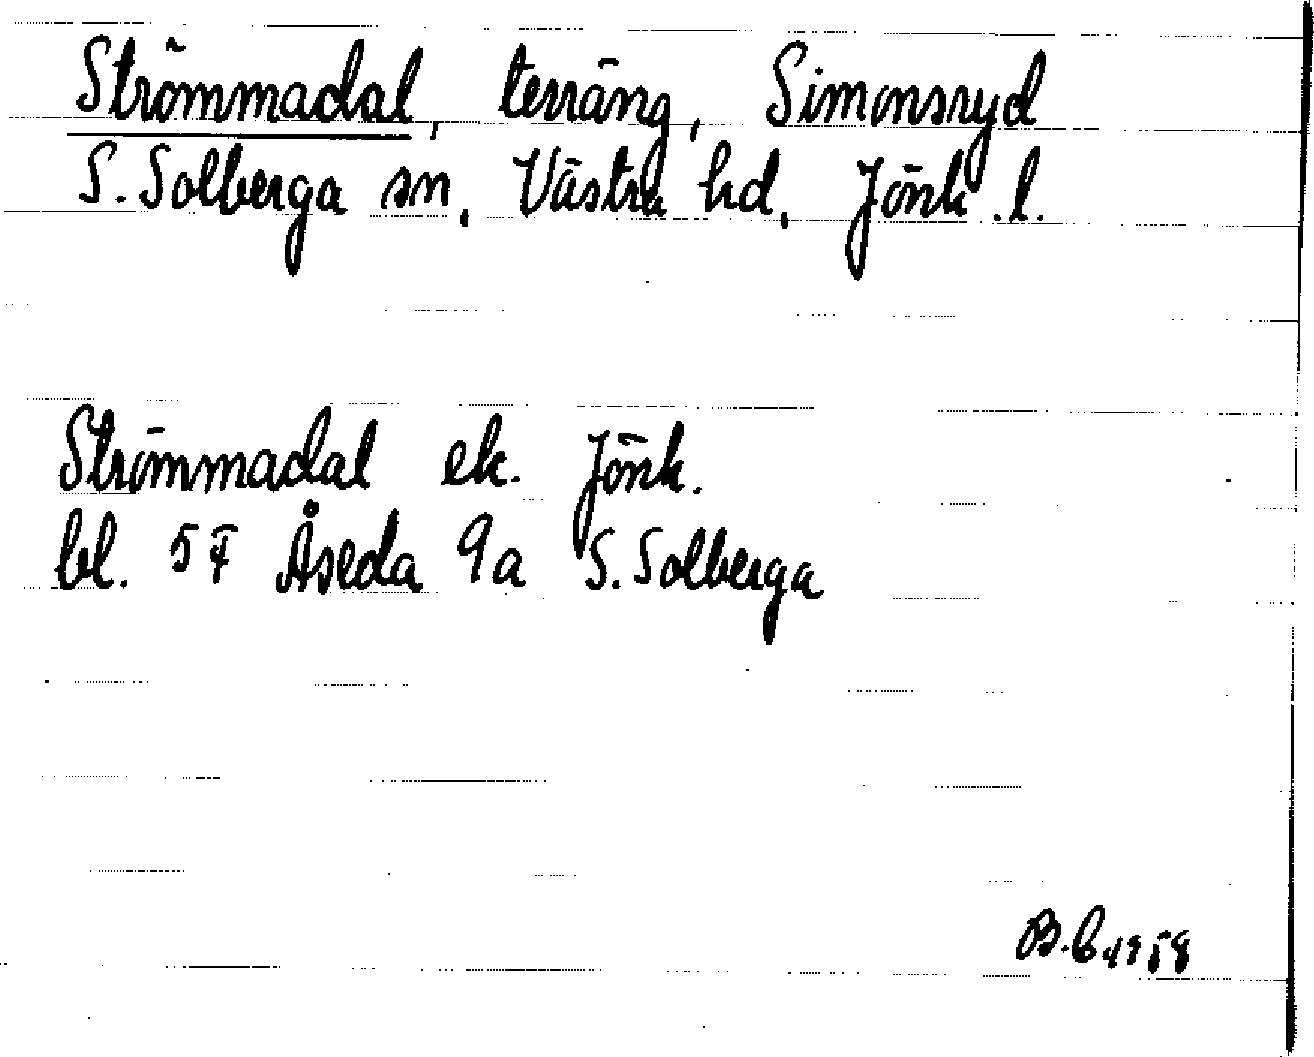 Strömmadal, terräng, Simonsryd
S. Solberga sn, Västra hd, Jönk. l.
Strömmadal ek. Jönk.
bl. 5F Åseda 9a S. Solberga
1958